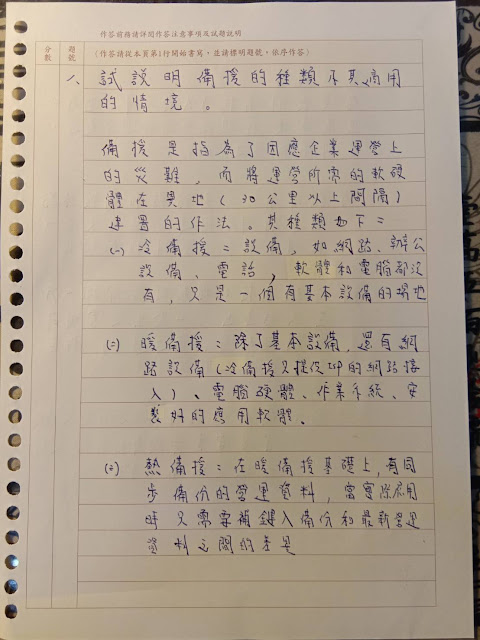 作答前務請詳閱作答注意事項及試題說明
分數 題號 (作答請從本頁第1行開始書寫,並請標明題號,依序作答)
八、試說明備援的種類及其適用
的情境。
備援是指為了因應企業運營上
的災難,而將運營所需的軟硬
體在異地(30公里以上間隔)
建置的作法。其種類如下:
(一)冷備援:設備,如網路、辦公
設備、電話,軟體和電腦都沒
有,只是一個有基本設備的場地
(二)暖備援:除了基本設備,還有網
路設備(冷備援只提供 的網路接
入)、電腦硬體、作業系統、安
裝好的應用軟體、
(三)熱備援:在暖備援基礎上,有同
步備份的營運資料,當實際啟用
時只需要補鍵入備份和最新營運
資料之間的差異